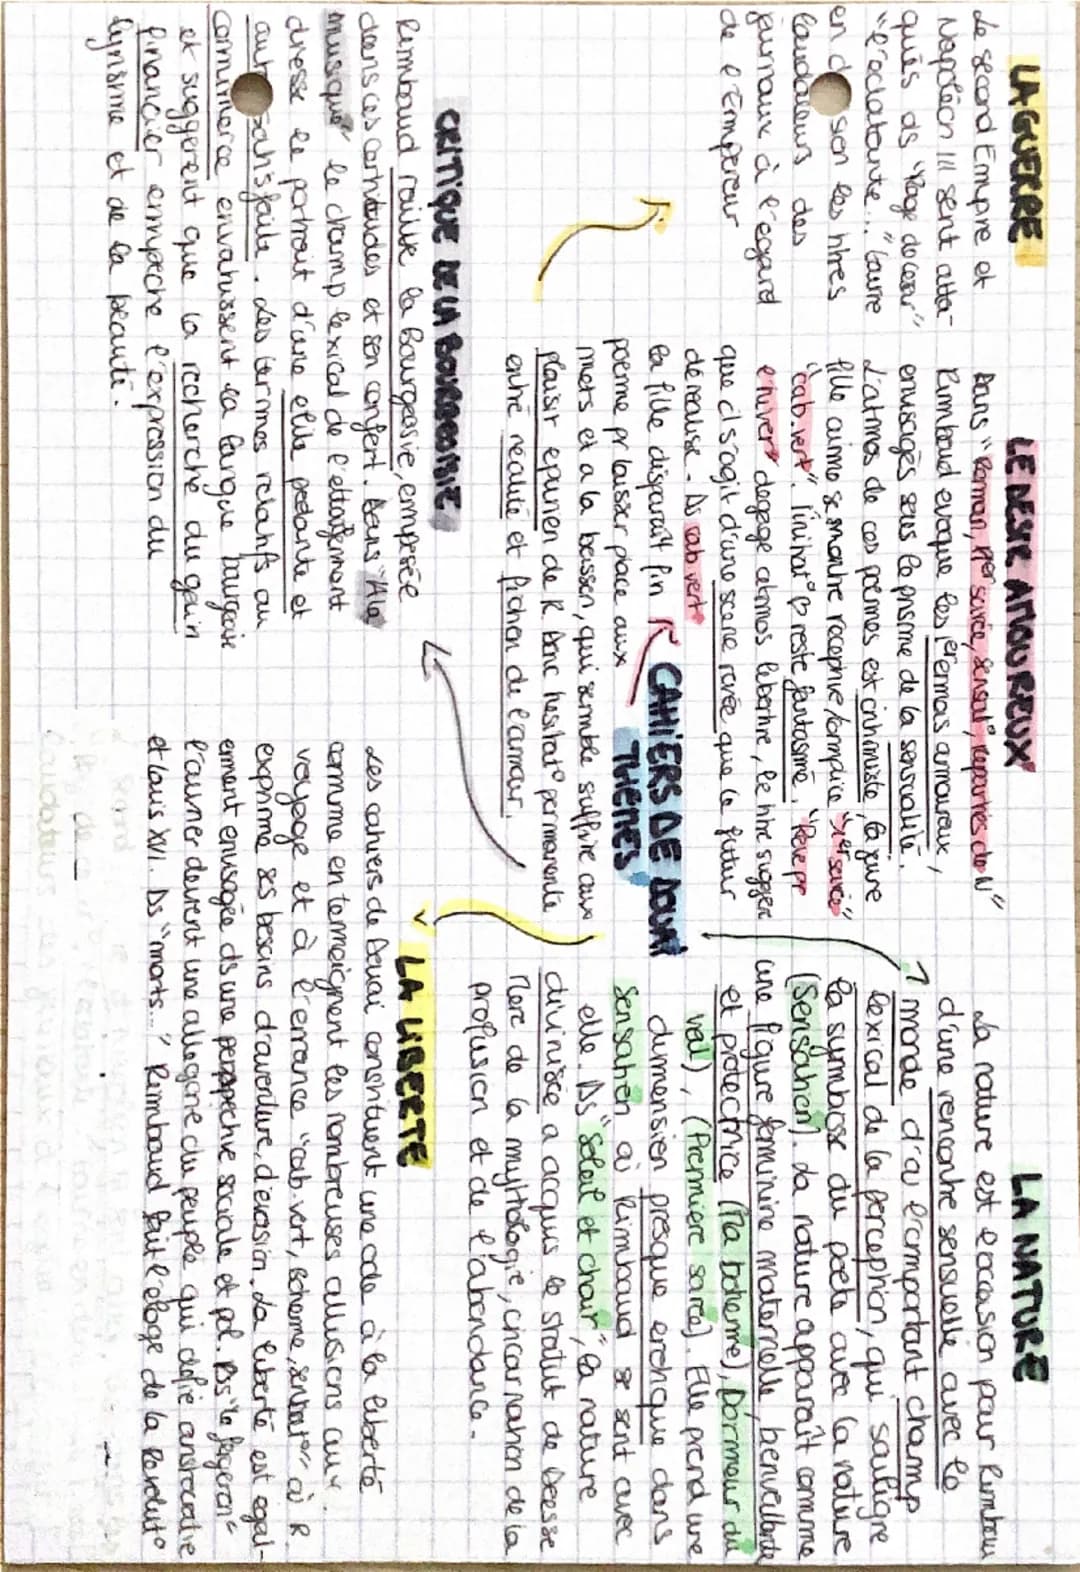 LA GUERRE
Le second Empire et
Napoléon III sont atta-
qués ds "Rage de César"
"l'éclatante..." Laurre
en d sion les titres
laudateurs des
journaux à l'égard
de l'Empereur
LE DESIR AMOUREUX
Dans "Roman, 1er soirée, sensat°, reparties de N"
Rimbaud evoque les 1er emmas amoureux,
envisagés sous le prisme de la sensualité.
L'atmos de ces poèmes est intimiste, la jeune
fille aime se montre receptive/complice "1er soirée"
"cab. vert". l'initiat° reste fantasmé. "Rêve pr
l'hiver" degage atmos libertine, le titre sugger
que il s'agit d'une scene rêvée que le futur
déréalise. Ds cab vert
la fille disparait fin
poème pr laisser place aux
mets et a la boisson, qui semble suffire aux
plaisir épicurien de R. Donc hesitat° permanente
entre réalité et fiction de l'amour.
LA NATURE
La nature est l'occasion pour Rimbau
d'une rencontre sensuelle avec le
monde d'où l'important champ
lexical de la perception, qui souligne
la symbiose du poète avec la nature
(Sensation). La nature apparaît comme
une figure feminine maternelle, bienveillante
et protectrice (Ma boheme), Dormeur du
val), (Premiere soirée). Elle prend une
dimension presque erotique dans
sensation où Rimbaud se sent avec
elle. Ds "Soleil et chair", la nature
divinisée a acquis le statut de Deesse
Mere de la mythologie, incarnation de la
profusion et de l'abondance.
CAHIERS DE DOUAI
THEMES
CRITIQUE DE LA BOURGEOISIE
Rimbaud raille la Bourgeoisie, empesée
dans ces certitudes et son confort. Dans "A la
musique" le champ lexical de l'ettoufement
dresse le portrait d'une elite pedante et
auto satisfaite. Les termes relatifs au
commerce envahissent la langue bourgeoise
et suggerent que la recherche du gain
financier empeche l'expression du
lyrisme et de la beauté.
LA LIBERTE
Les cahiers de Douai constituent une ode à la liberté
comme en temoignent les nombreuses allusions aux
voyage et à l'errance "cab. vert, Boheme, sensat°" où R.
exprime ses besoins d'aventure, d'evasion. La liberté est egal-
ement envisagée ds une perspective sociale et pol. Ds "le forgeron"
l'ouvrier devient une allegorie du peuple qui defie aristocratie
et Louis XVI. Ds "morts..." Rimbaud fait l'eloge de la Révolut°